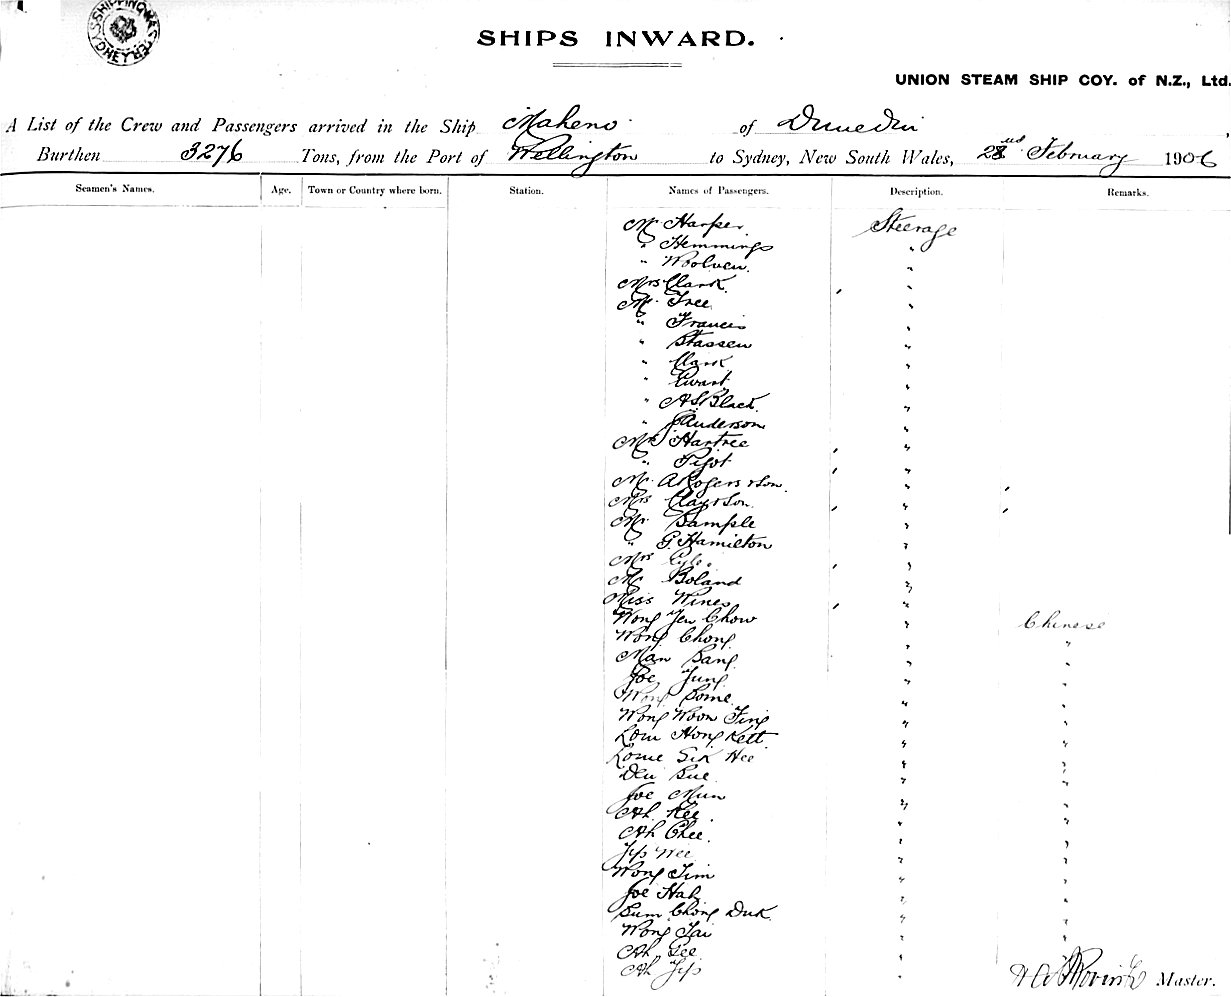 SHIPPING MASTER SYDNEY
SHIPS INWARD.
UNION STEAM SHIP COY. of N.Z., Ltd.
A List of the Crew and Passengers arrived in the Ship Maheno of Dunedin,
Burthen 3276 Tons, from the Port of Wellington to Sydney, New South Wales, 2nd February 1906
Seamen's Names. Age. Town or Country where born. Station. Names of Passengers. Description. Remarks.
Mr Harper Steerage
" Hemmings "
" Woolven "
Mrs Clark "
Mr Tree "
" Francis "
" Stassen "
" Clark "
" Ewart "
" A S Black "
" J Anderson "
Mrs Hartree "
" Pigot "
Mr A Rogers & Son "
Mrs Clay & Son "
Mr Sample "
" G. Hamilton "
Mrs "
Mr Boland "
Miss Wines "
Wong Yen Chow " Chinese
Wong Chong " "
Man Sang " "
Joe Jung " "
Wong Some " "
Wong Woon Ting " "
Low Hong Kett " "
Lowe Sik Hee " "
Sue " "
Joe Mun " "
Ah Kee " "
Ah Chee " "
Yip Wee " "
Wong Tim " "
Joe Hah " "
Sum Chong Duk " "
Wong Tai " "
Ah Gee " "
Ah Yip " Master.